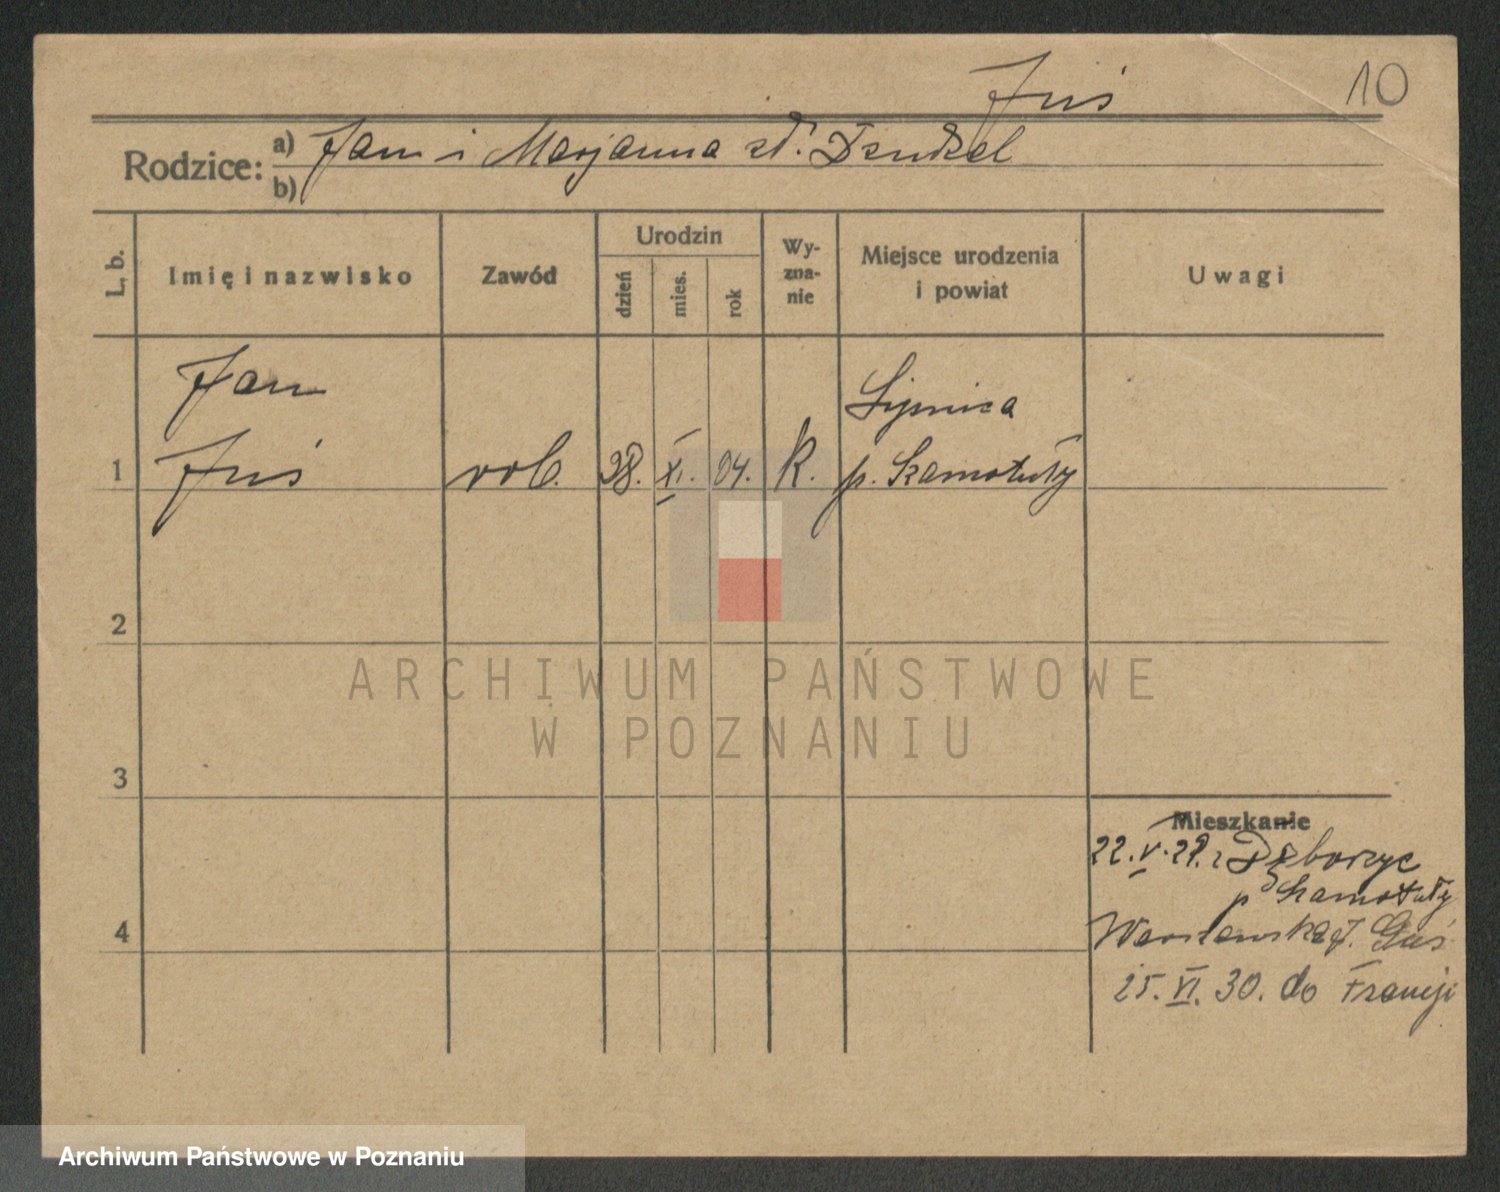 Juś
10
Rodzice: a) Jan i Marjanna
b)
L. b.
Imię i nazwisko
Zawód
Urodzin
dzień
mies.
rok
Wy-
zna-
nie
Miejsce urodzenia
i powiat
Uwagi
Jan
Lipnica
1 Juś rob. 28. XI. 04. k. p. Szamotuły
2
ARCHIWUM PAŃSTWOWE
W POZNANIU
3
Mieszkanie
22. V. 29. z
p Szamotuły
4
25. VI. 30. do Francji
Archiwum Państwowe w Poznaniu